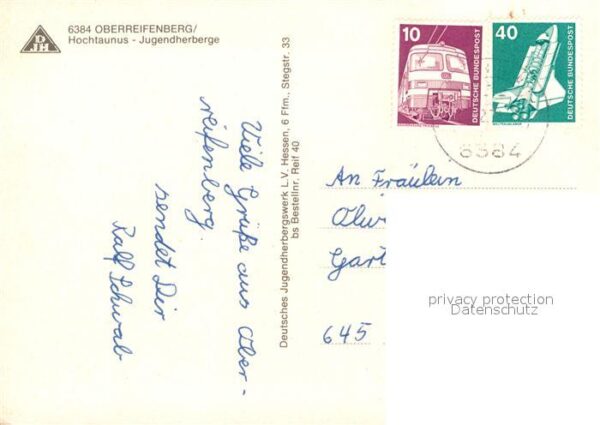 DJH
6384 OBERREIFENBERG/
Hochtaunus - Jugendherberge
Viele Grüße aus Ober-
reifenberg.
sendet Dir
Ralf Schwab
Deutsches Jugendherbergswerk L.V. Hessen, 6 Ffm., Stegstr. 33
bs Bestellnr. Reif 40
10
DEUTSCHE BUNDESPOST
40
DEUTSCHE BUNDESPOST
6384
An Fräulein
Olw
Gart
645
privacy protection
Datenschutz